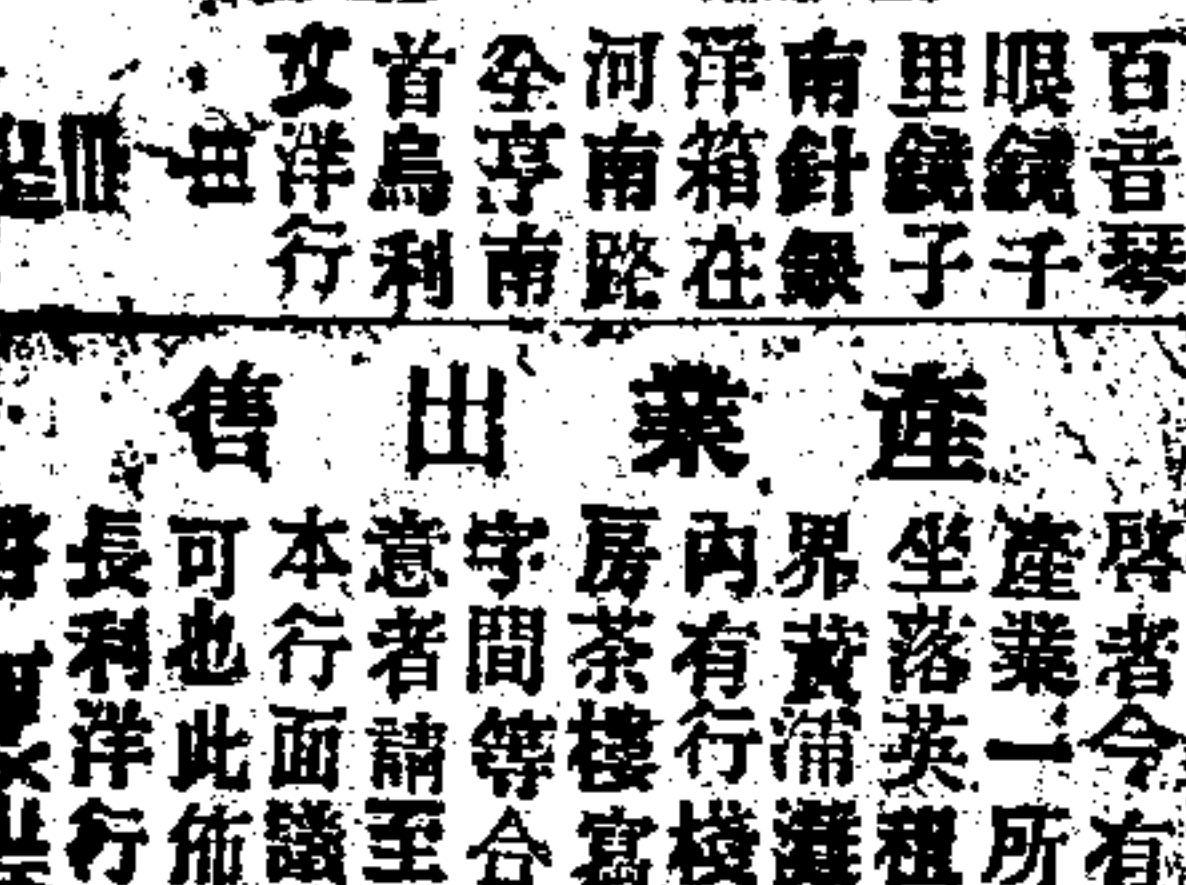 百音琴
眼鏡千
里鏡子
南針銀
洋箱在
河南路
全亨南
首烏利
文洋行
産業出售
啓者今有
產業一所
坐落英租
界黃浦灘
內有行棧
房茶樓寫
字間等合
意者請至
本行面議
可也此佈
長利洋行